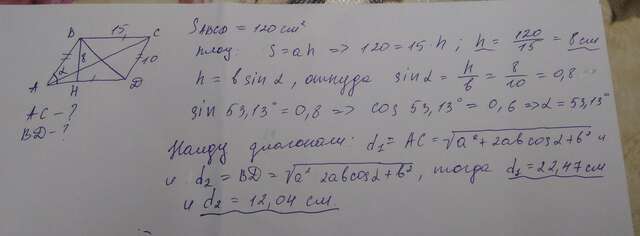 B 15 C
8 10
A α H D
AC - ?
BD - ?
S ABCD = 120 см²
S = ah => 120 = 15 · h ; h = 120/15 = 8 см
h = b sin α, откуда sin α = h/b = 8/10 = 0,8
sin 53,13° = 0,8 => cos 53,13° = 0,6 => α = 53,13°
Найду диагонали: d₁ = AC = √a² + 2ab cos α + b² и
и d₂ = BD = √a² 2ab cos α + b², тогда d₁ = 22,47 см
и d₂ = 12,04 см